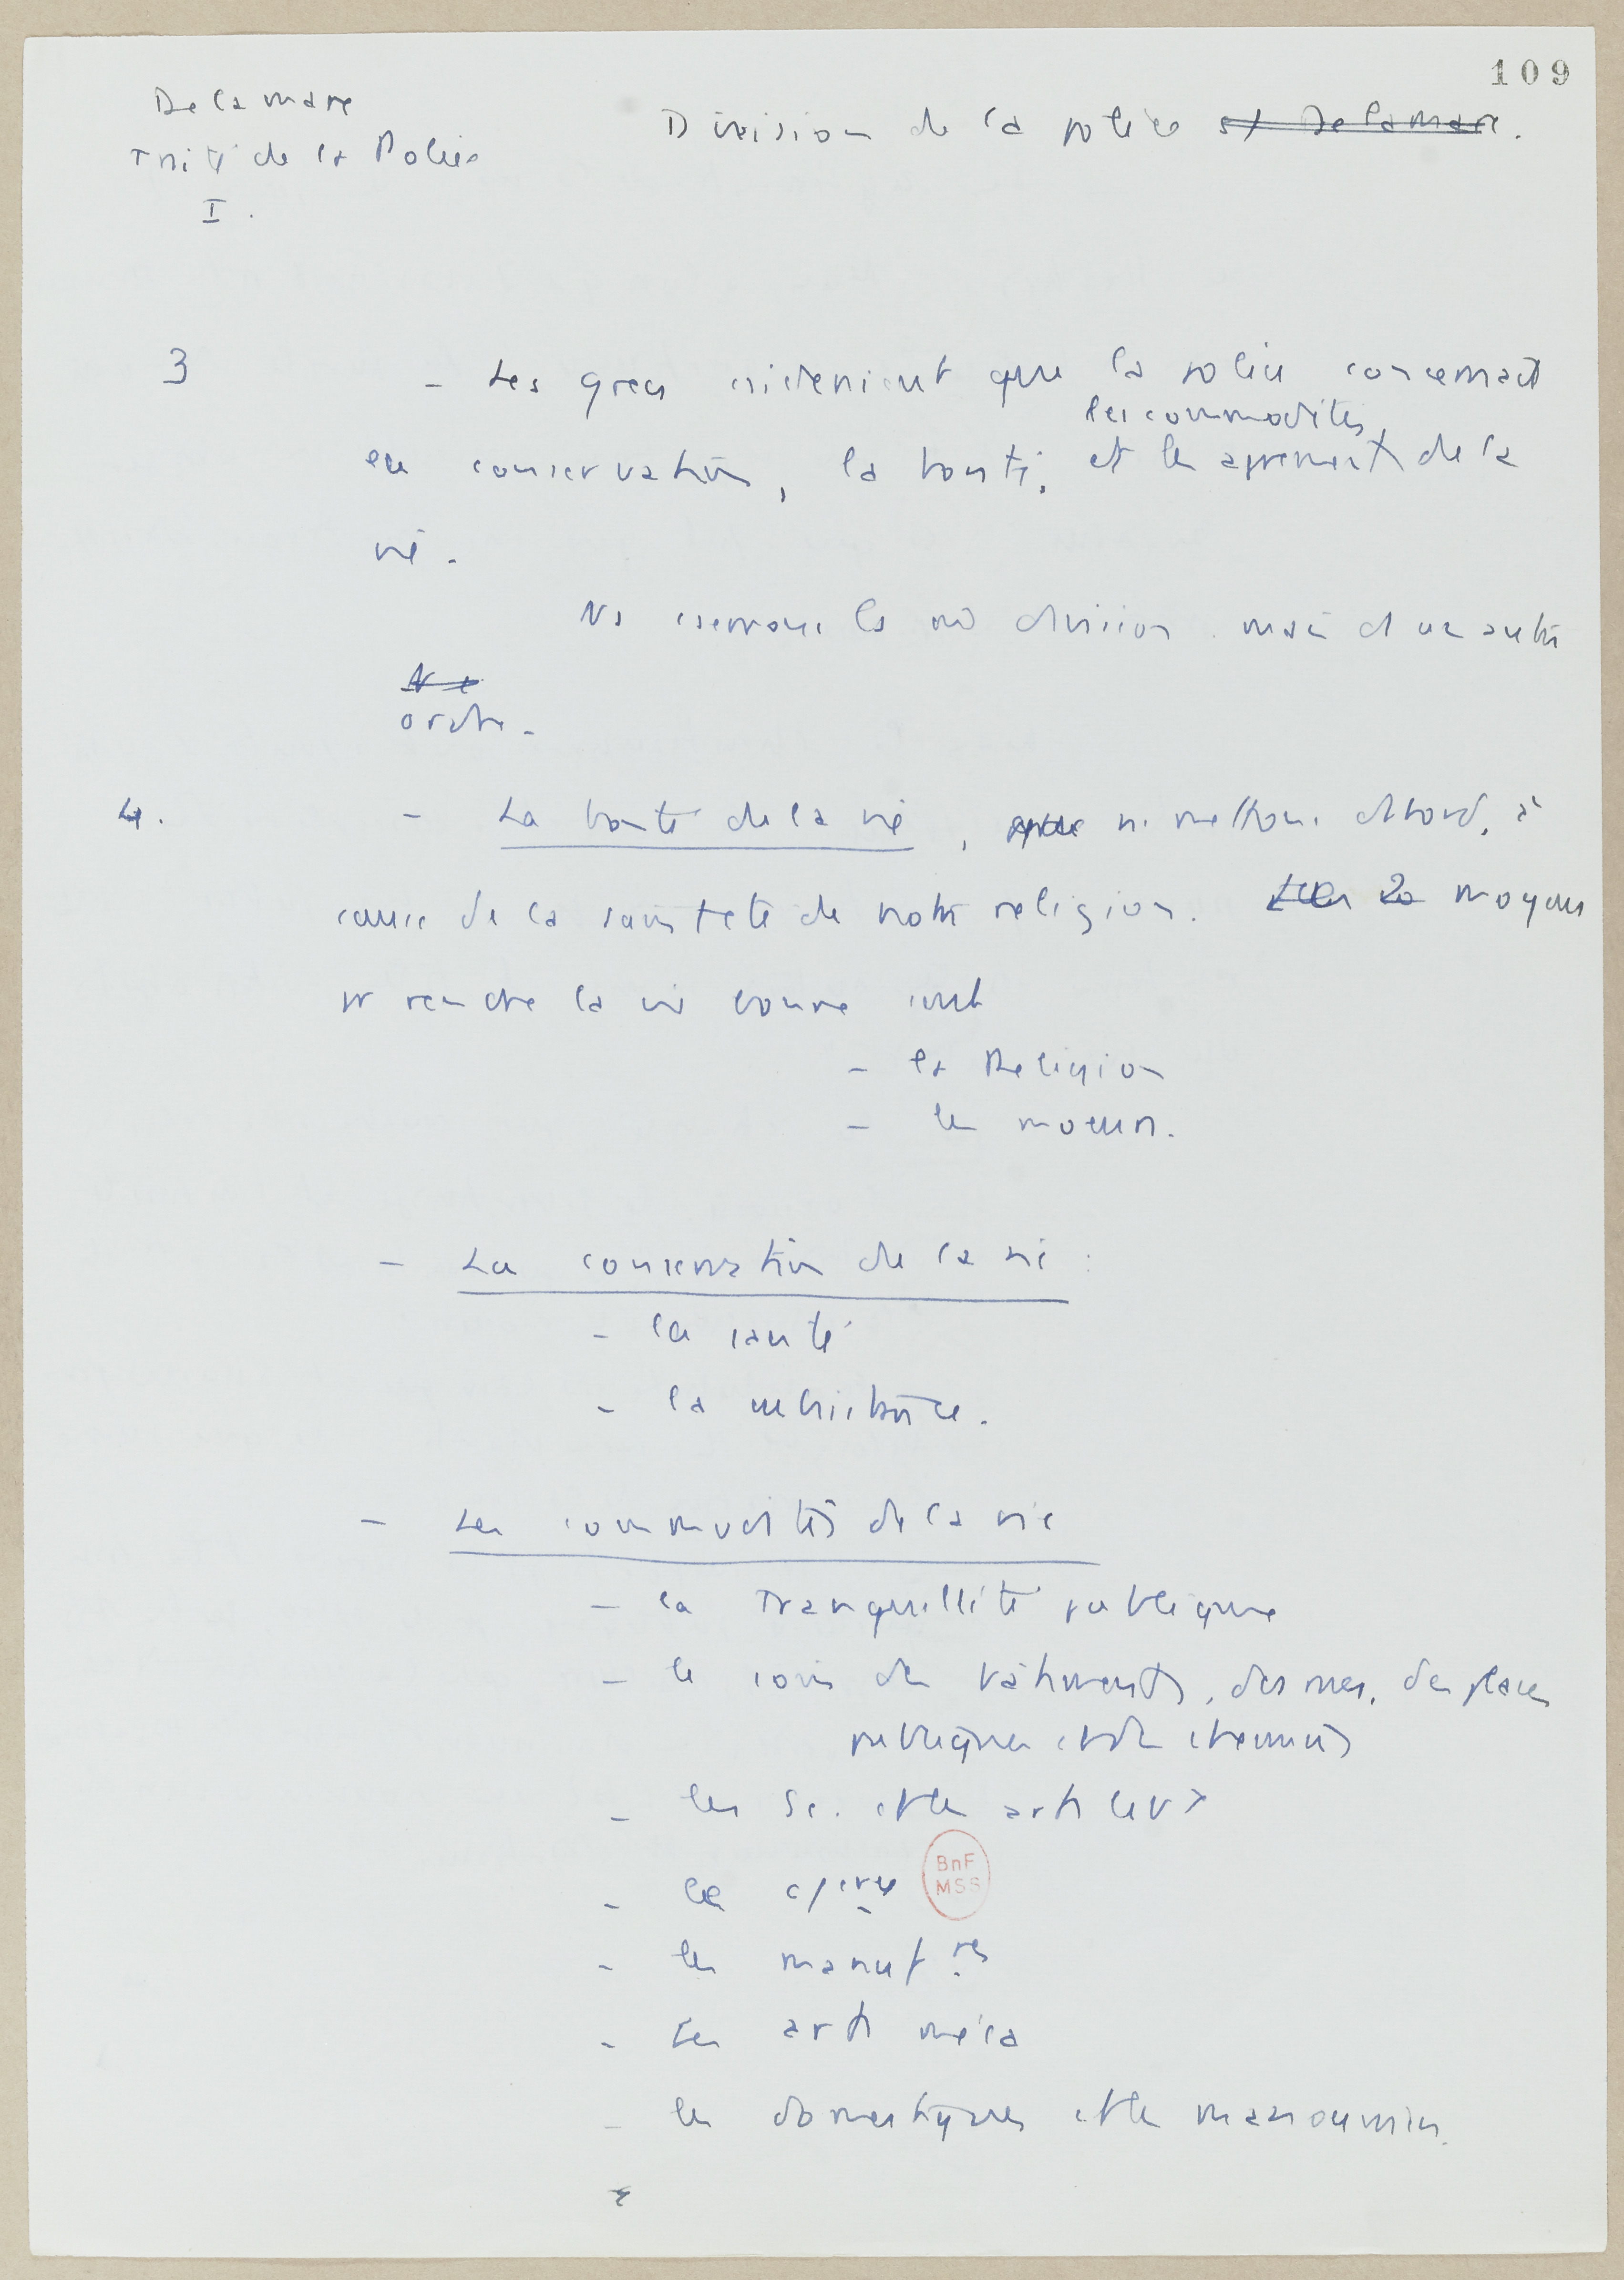 109
Delamare
Traité de la Police
I.
Division de la police s/ Delamare.
3
- Les grecs estimaient que la police concernait
les commodités
la conservation, la bonté, et les agréments de la
vie.
Ns csernons la mê division. mais ds un autre
ordre.
4.
- La bonté de la vie, ns mettons d'abord, à
cause de la sainteté de notre religion. Les 2 moyens
pr rendre la vie bonne sont
- la Religion
- les moeurs.
- La conservation de la vie :
- la santé
- la subsistance.
- Les commodités de la vie
- la tranquillité publique
- le soin des bâtiments, des rues, des places
publiques et des chemins
- les Sc. et les arts libx
- le c/erce
- les manuf.res
- Les arts méca
- les domestiques et les manouvriers.
BnF
MSS